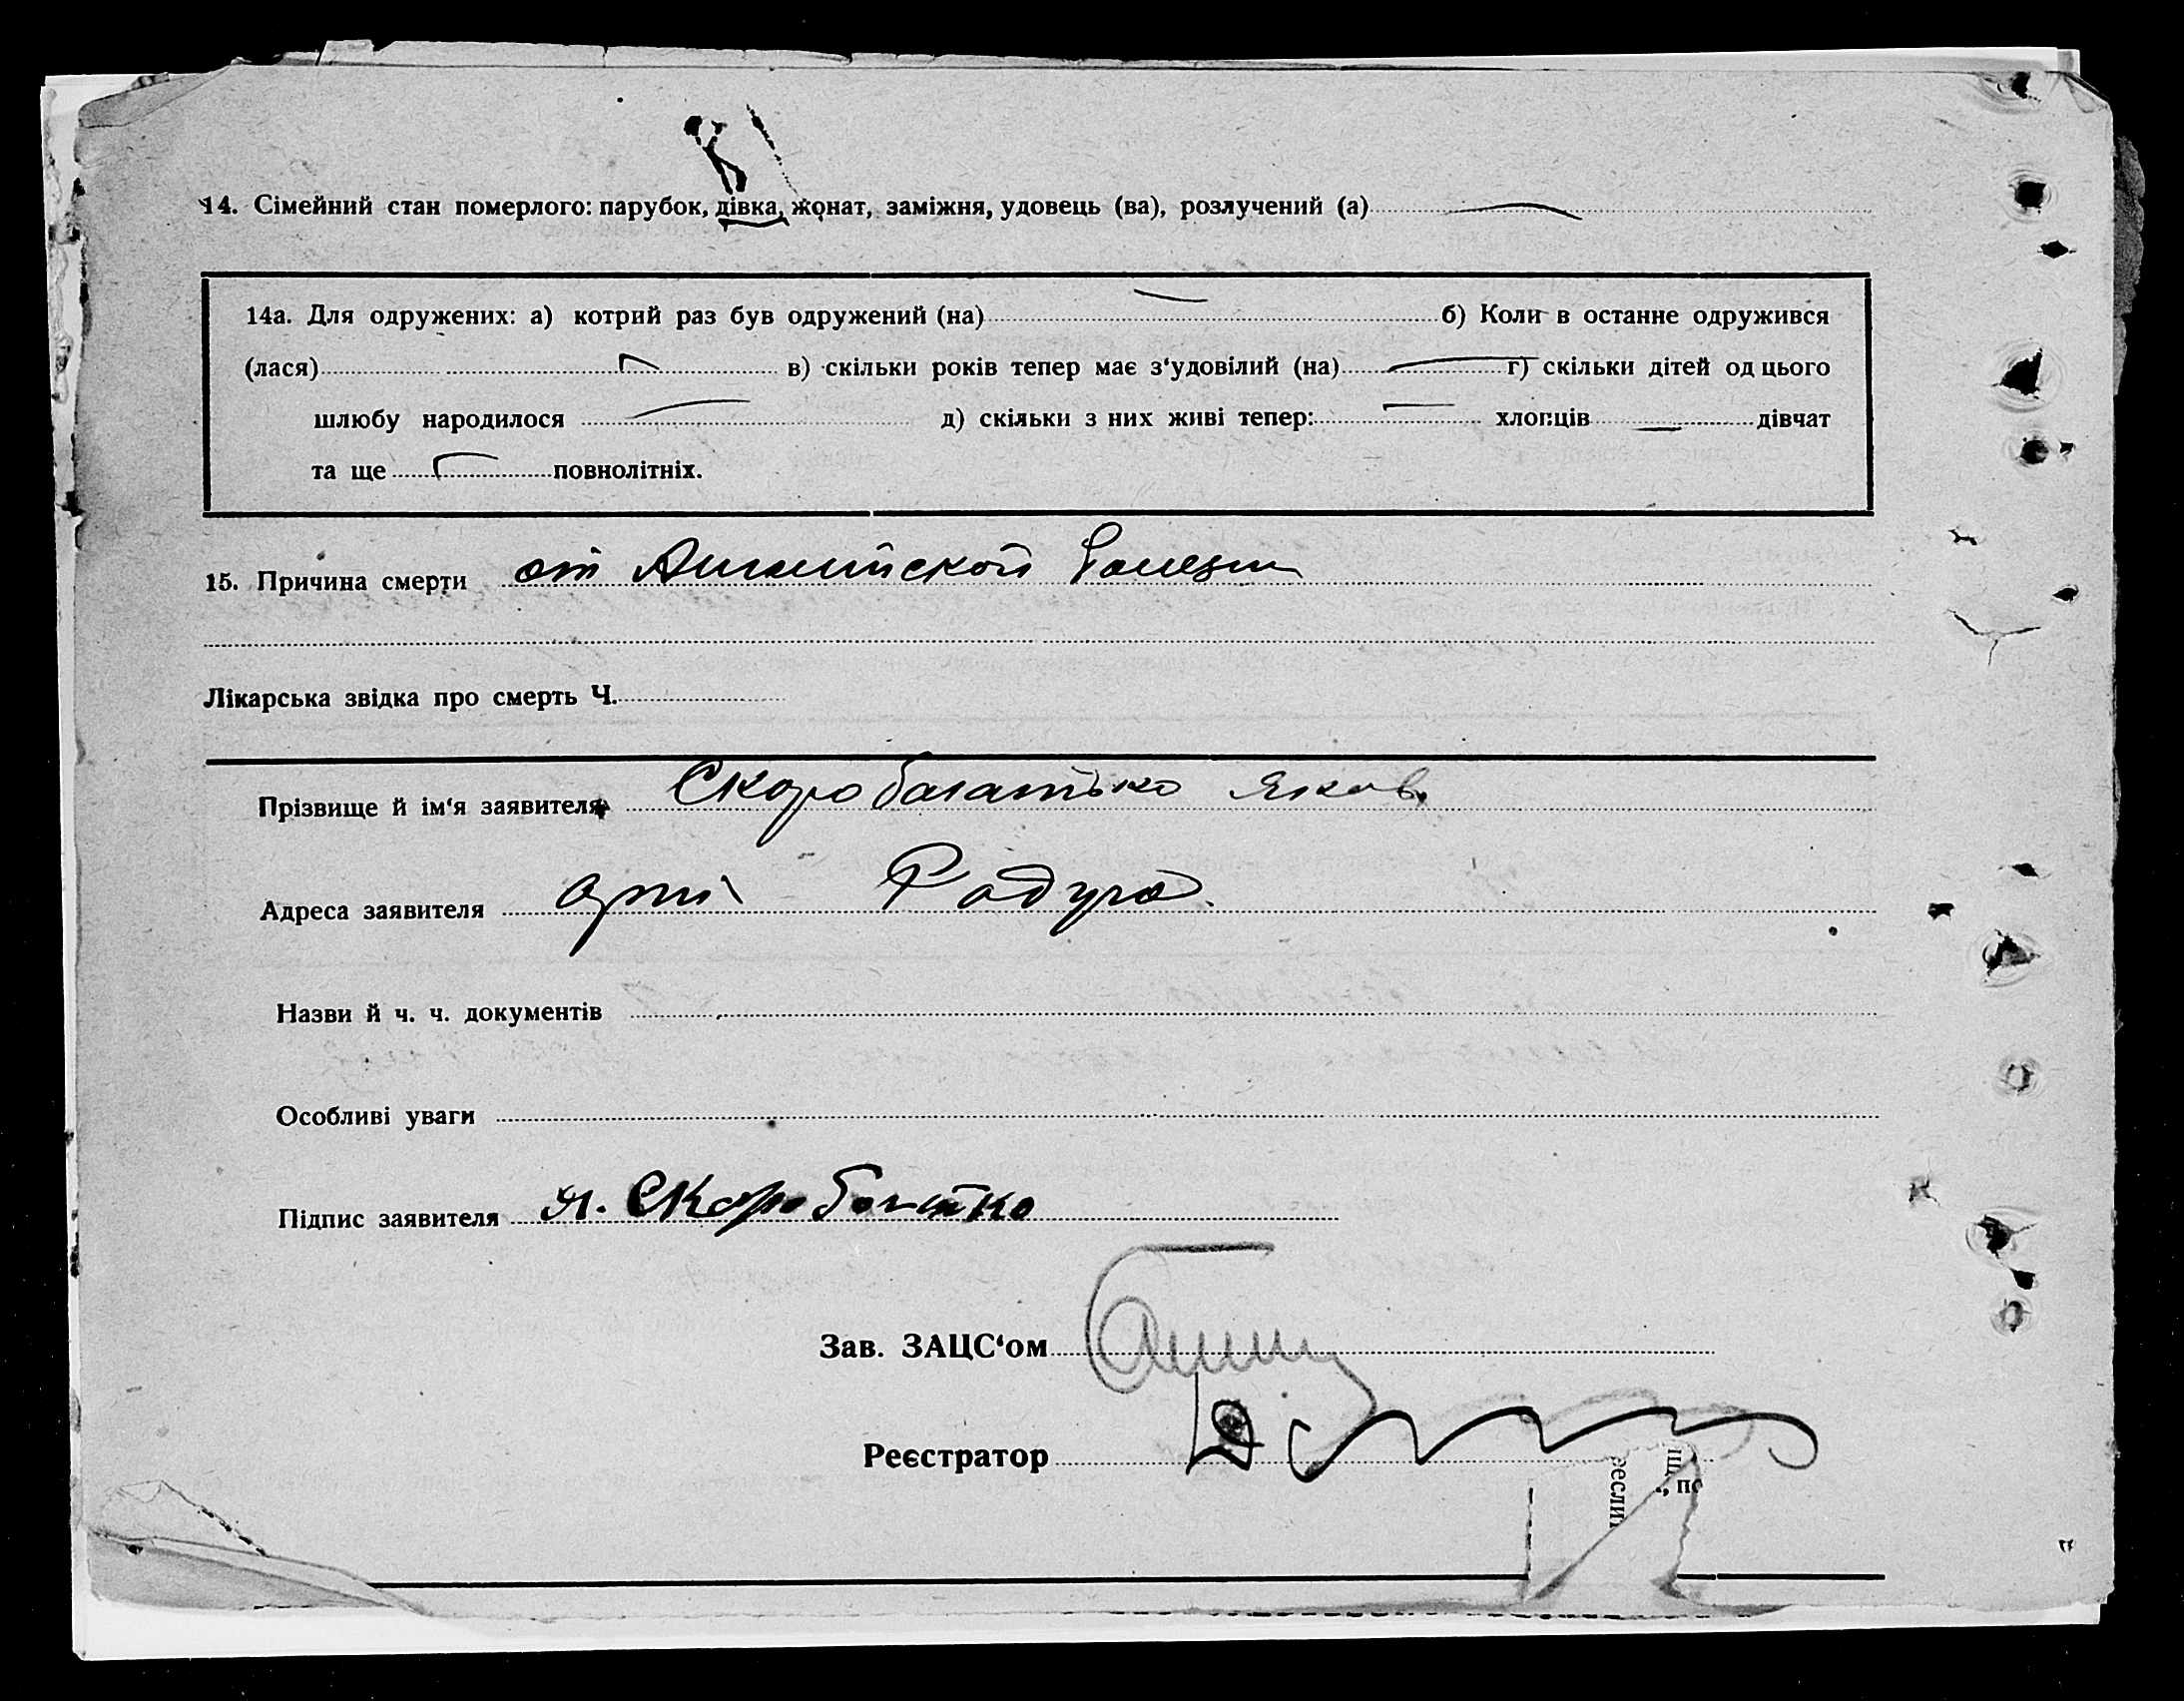 14. Сімейний стан померлого: парубок, дівка, жонат, заміжня, удовець (ва), розлучений (а)
14а. Для одружених: а) котрий раз був одружений (на) б) Коли в останне одружився
(лася) в) скільки років тепер має з‘удовілий (на) г) скільки дітей од цього
шлюбу народилося д) скільки з них живі тепер: хлопців дівчат
та ще повнолітніх.
15. Причина смерти от Английской болезни
Лікарська звідка про смерть Ч.
Прізвище й ім‘я заявителя Скоробагатько Яков
Адреса заявителя арті Радуга.
Назви й ч. ч. документів
Особливі уваги
Підпис заявителя Я. Скоробагатко
Зав. ЗАЦС‘ом
Реєстратор